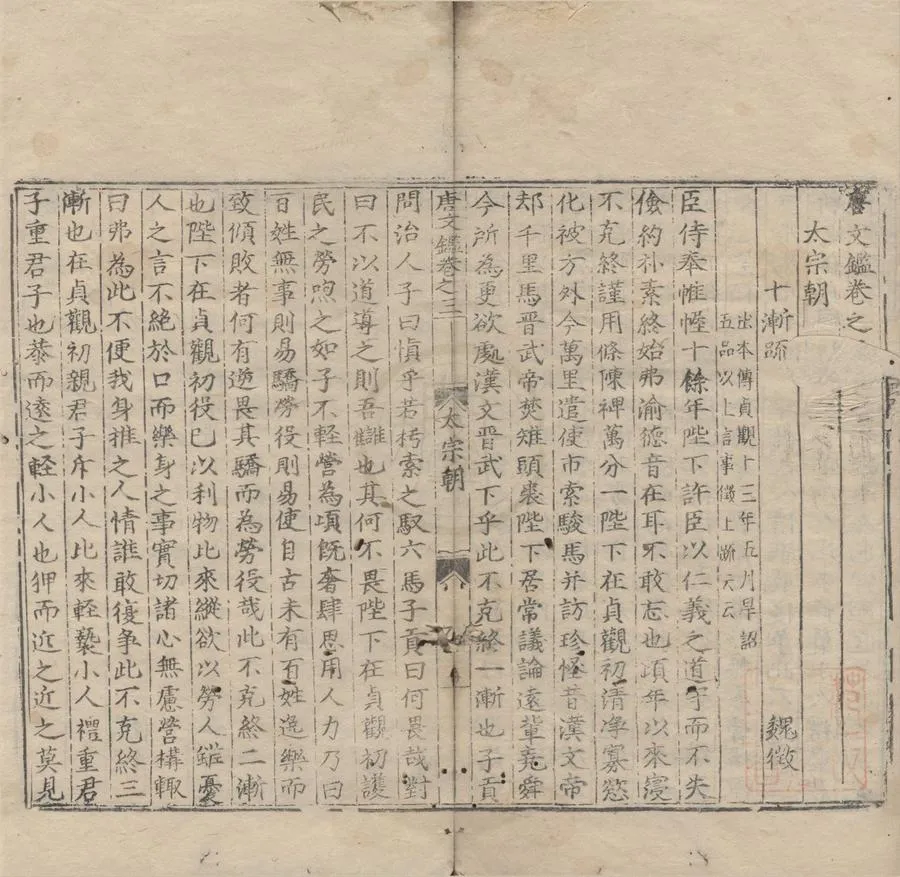 唐文鑑卷之
太宗朝
十漸疏 魏徵
出本傳貞觀十三年五月旱詔
五品以上言事徵上疏大云
臣侍奉帷幄十餘年陛下許臣以仁義之道守而不失
儉約朴素終始弗渝德音在耳不敢忘也頃年以來寖
不克終謹用條陳裨萬分一陛下在貞觀初清淨寡慾
化被方外今萬里遣使市索駿馬并訪珍怪昔漢文帝
却千里馬晉武帝焚雉頭裘陛下居常議論遠輩堯舜
今所為更欲處漢文晉武下乎此不克終一漸也子貢
唐文鑑卷之三 太宗朝
問治人子曰慎乎若朽索之馭六馬子貢曰何畏哉對
曰不以道導之則吾讎也其何不畏陛下在貞觀初護
民之勞喣之如子不輕營為頃既奢肆思用人力乃曰
百姓無事則易驕勞役則易使自古未有百姓逸樂而
致傾敗者何有逆畏其驕而為勞役哉此不克終二漸
也陛下在貞觀初役己以利物比來縱欲以勞人雖憂
人之言不絕於口而樂身之事實切諸心無慮營構輒
曰弗為此不便我身推之人情誰敢復争此不克終三
漸也在貞觀初親君子斥小人比來輕褻小人禮重君
子重君子也恭而遠之輕小人也狎而近之近之莫見